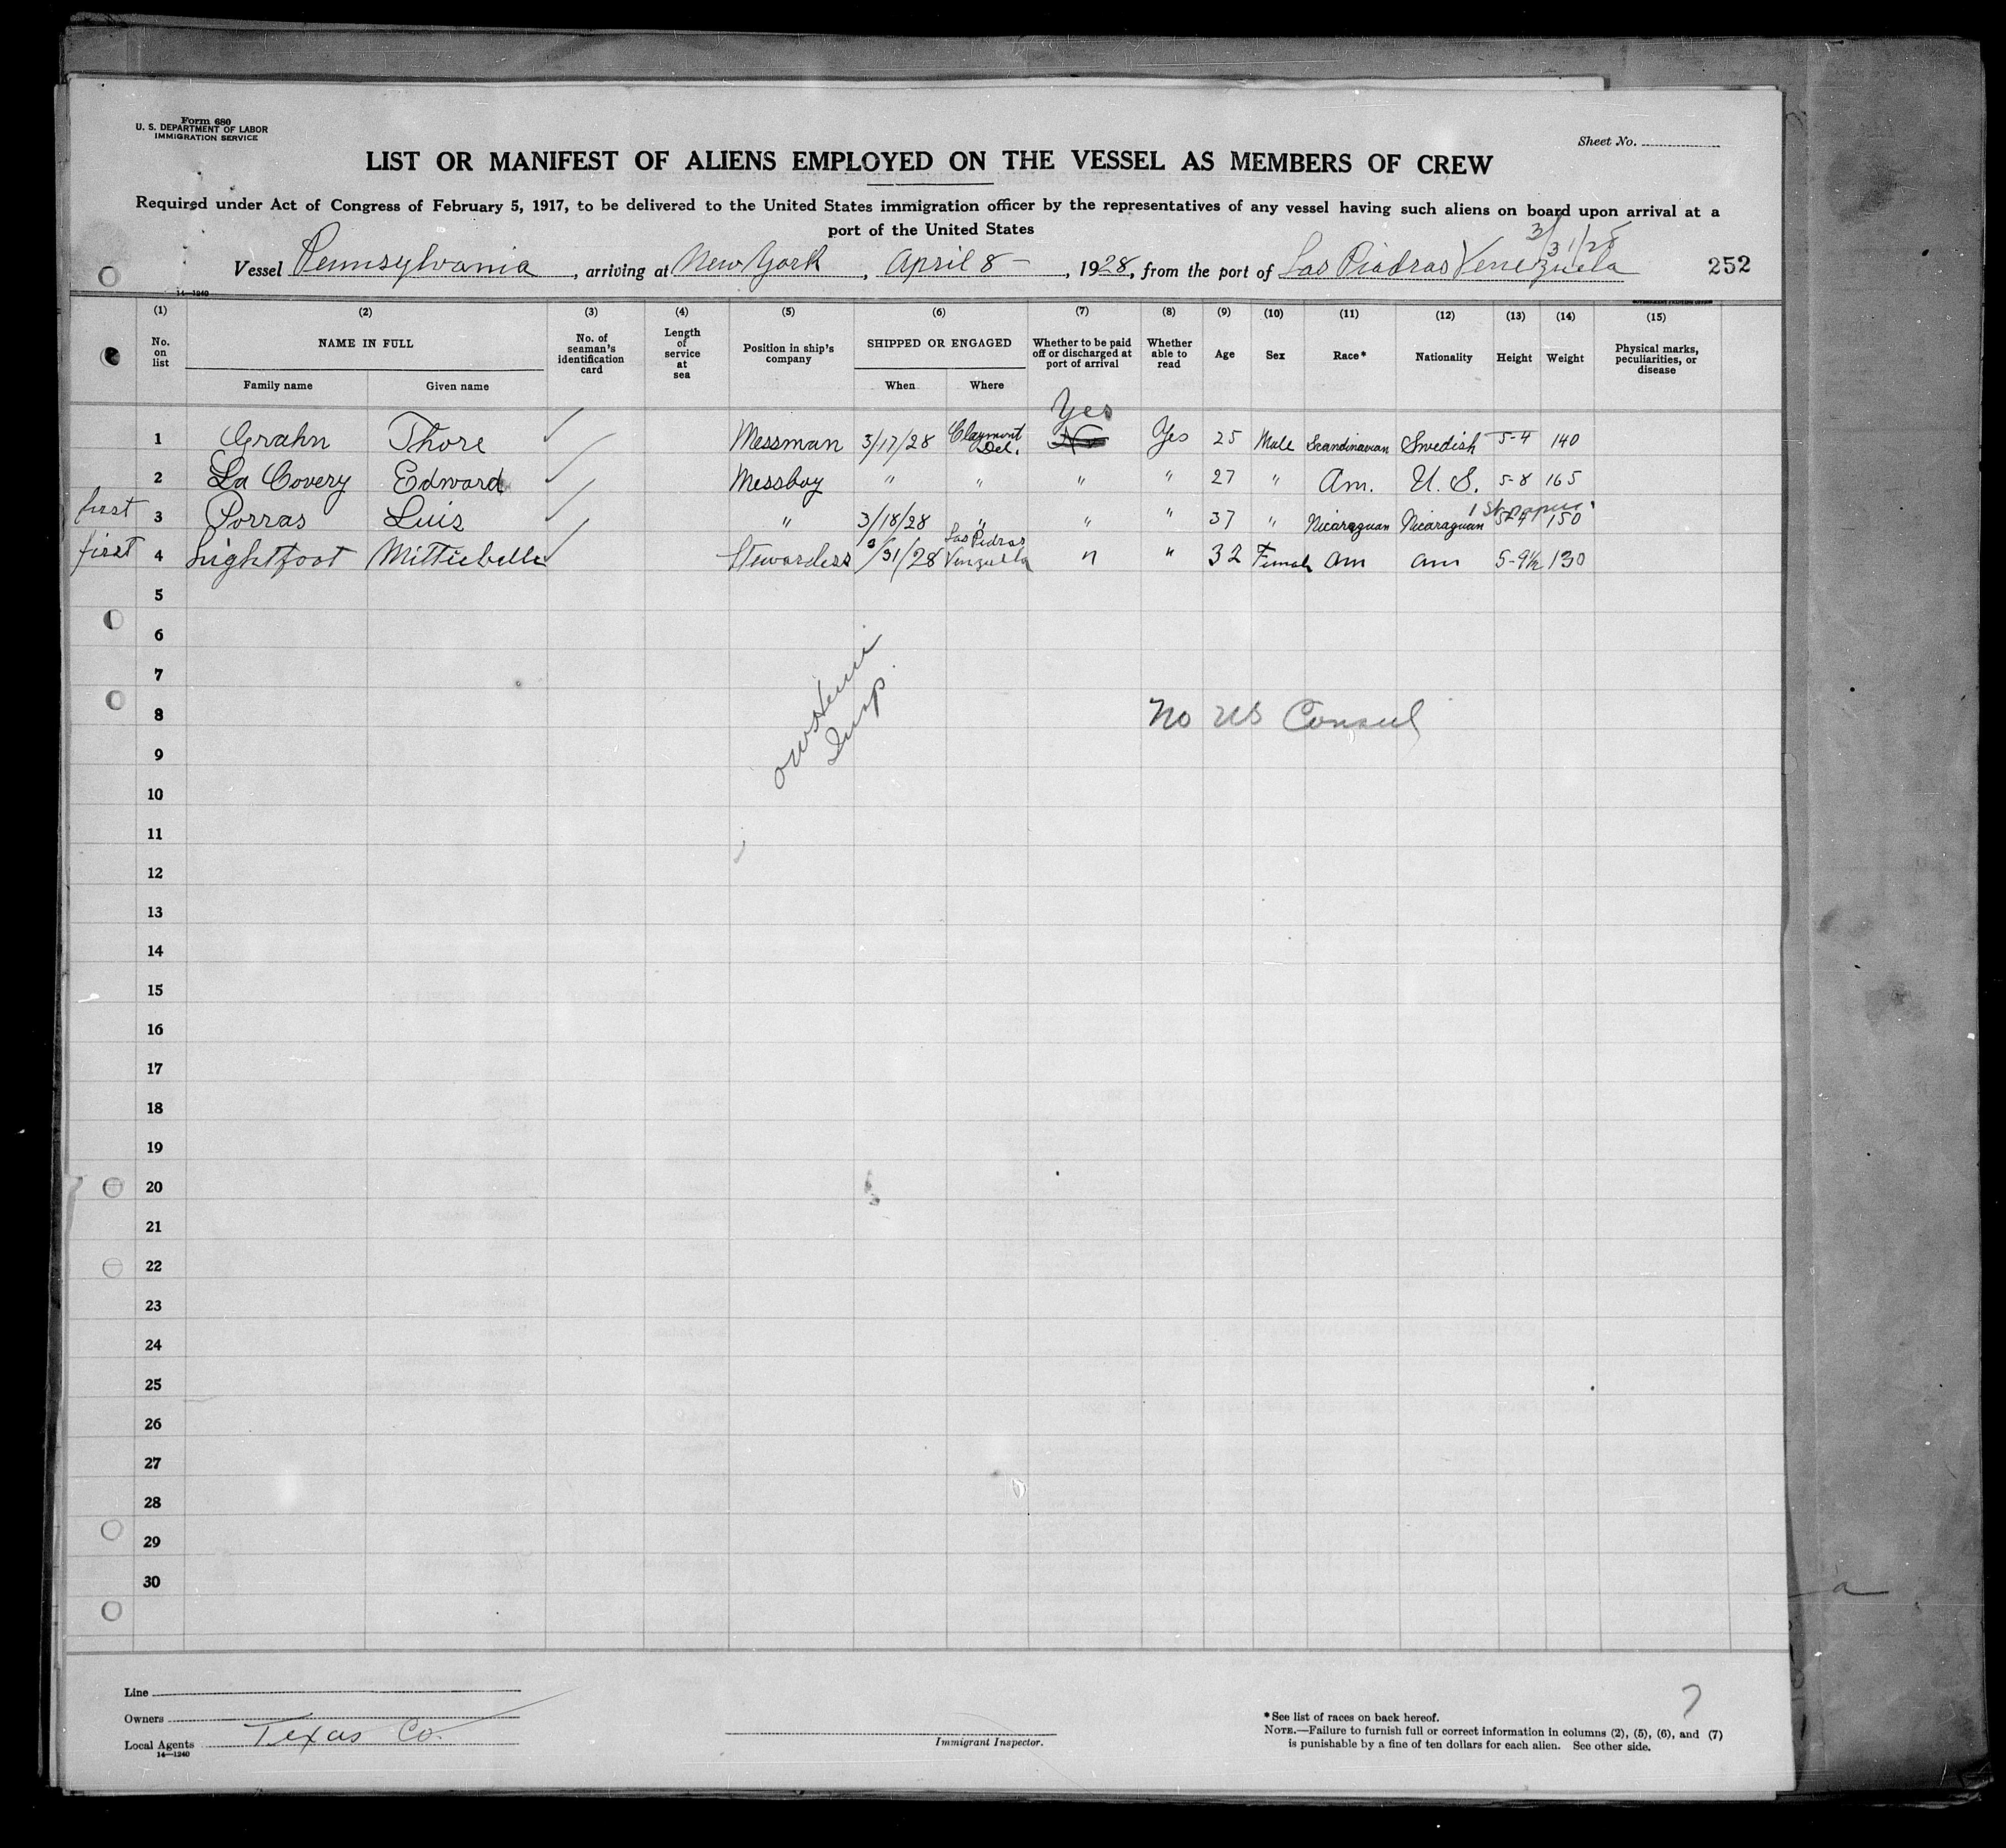 Form 680
U. S. DEPARTMENT OF LABOR
IMMIGRATION SERVICE
Sheet No.
LIST OR MANIFEST OF ALIENS EMPLOYED ON THE VESSEL AS MEMBERS OF CREW
Required under Act of Congress of February 5, 1917, to be delivered to the United States immigration officer by the representatives of any vessel having such aliens on board upon arrival at a
port of the United States
3/31/28
Vessel Pennsylvania, arriving at New York, April 8 -, 1928, from the port of Las Piadras Venezuela 252
14—1240
(1) (2) (3) (4) (5) (6) (7) (8) (9) (10) (11) (12) (13) (14) (15)
No. on list NAME IN FULL No. of seaman's identification card Length of service at sea Position in ship's company SHIPPED OR ENGAGED Whether to be paid off or discharged at port of arrival Whether able to read Age Sex Race* Nationality Height Weight Physical marks, peculiarities, or disease
Family name Given name When Where
Yes
1 Grahn Thore Messman 3/17/28 Claymont Del. No Yes 25 Male Scandinavian Swedish 5-4 140
2 La Covery Edward Messboy " " " " 27 " Am. U. S. 5-8 165
1st paper
first 3 Porras Luis " 3/18/28 " " " 37 " Nicaraguan Nicaraguan 5-4 150
first 4 Lightfoot Mittiebelle Stewardess 3/31/28 Las Piedras Venzuella " " 32 Female am am 5-9½ 130
5
6
7
8 No US Consul
Insp
9
10
11
12
13
14
15
16
17
18
19
20
21
22
23
24
25
26
27
28
29
30
Line
Owners
Texas Co.
Local Agents
14—1240
Immigrant Inspector.
*See list of races on back hereof.
NOTE.—Failure to furnish full or correct information in columns (2), (5), (6), and (7)
is punishable by a fine of ten dollars for each alien. See other side.